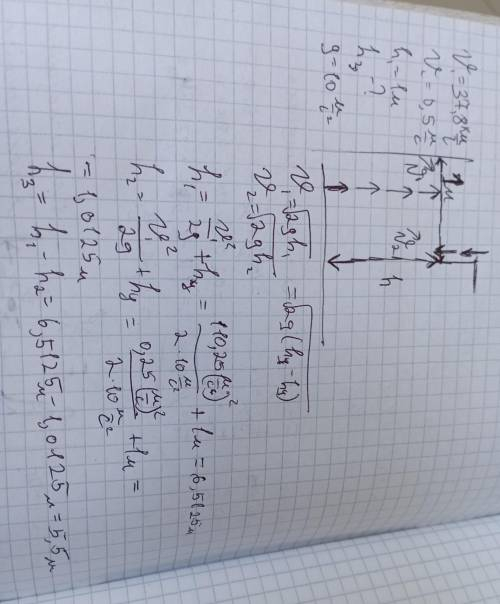 𝒱₁ = 37,8 км/ч
𝒱₂ = 0,5 м/с
h₁ = 1м
h₃ - ?
g = 10 м/с²
1м
𝒱₁
𝒱₂
h
𝒱₁ = √2gh₁ = √2g(hₓ - h₁)
𝒱₂ = √2gh₂
h₁ = 𝒱₁²/2g + hᵧ = 110,25(м/с)²/2·10м/с² + 1м = 6,5125м
h₂ = 𝒱²/2g + hᵧ = 0,25(м/с)²/2·10м/с² + 1м =
= 1,0125м
h₃ = h₁ - h₂ = 6,5125м - 1,0125м = 5,5м